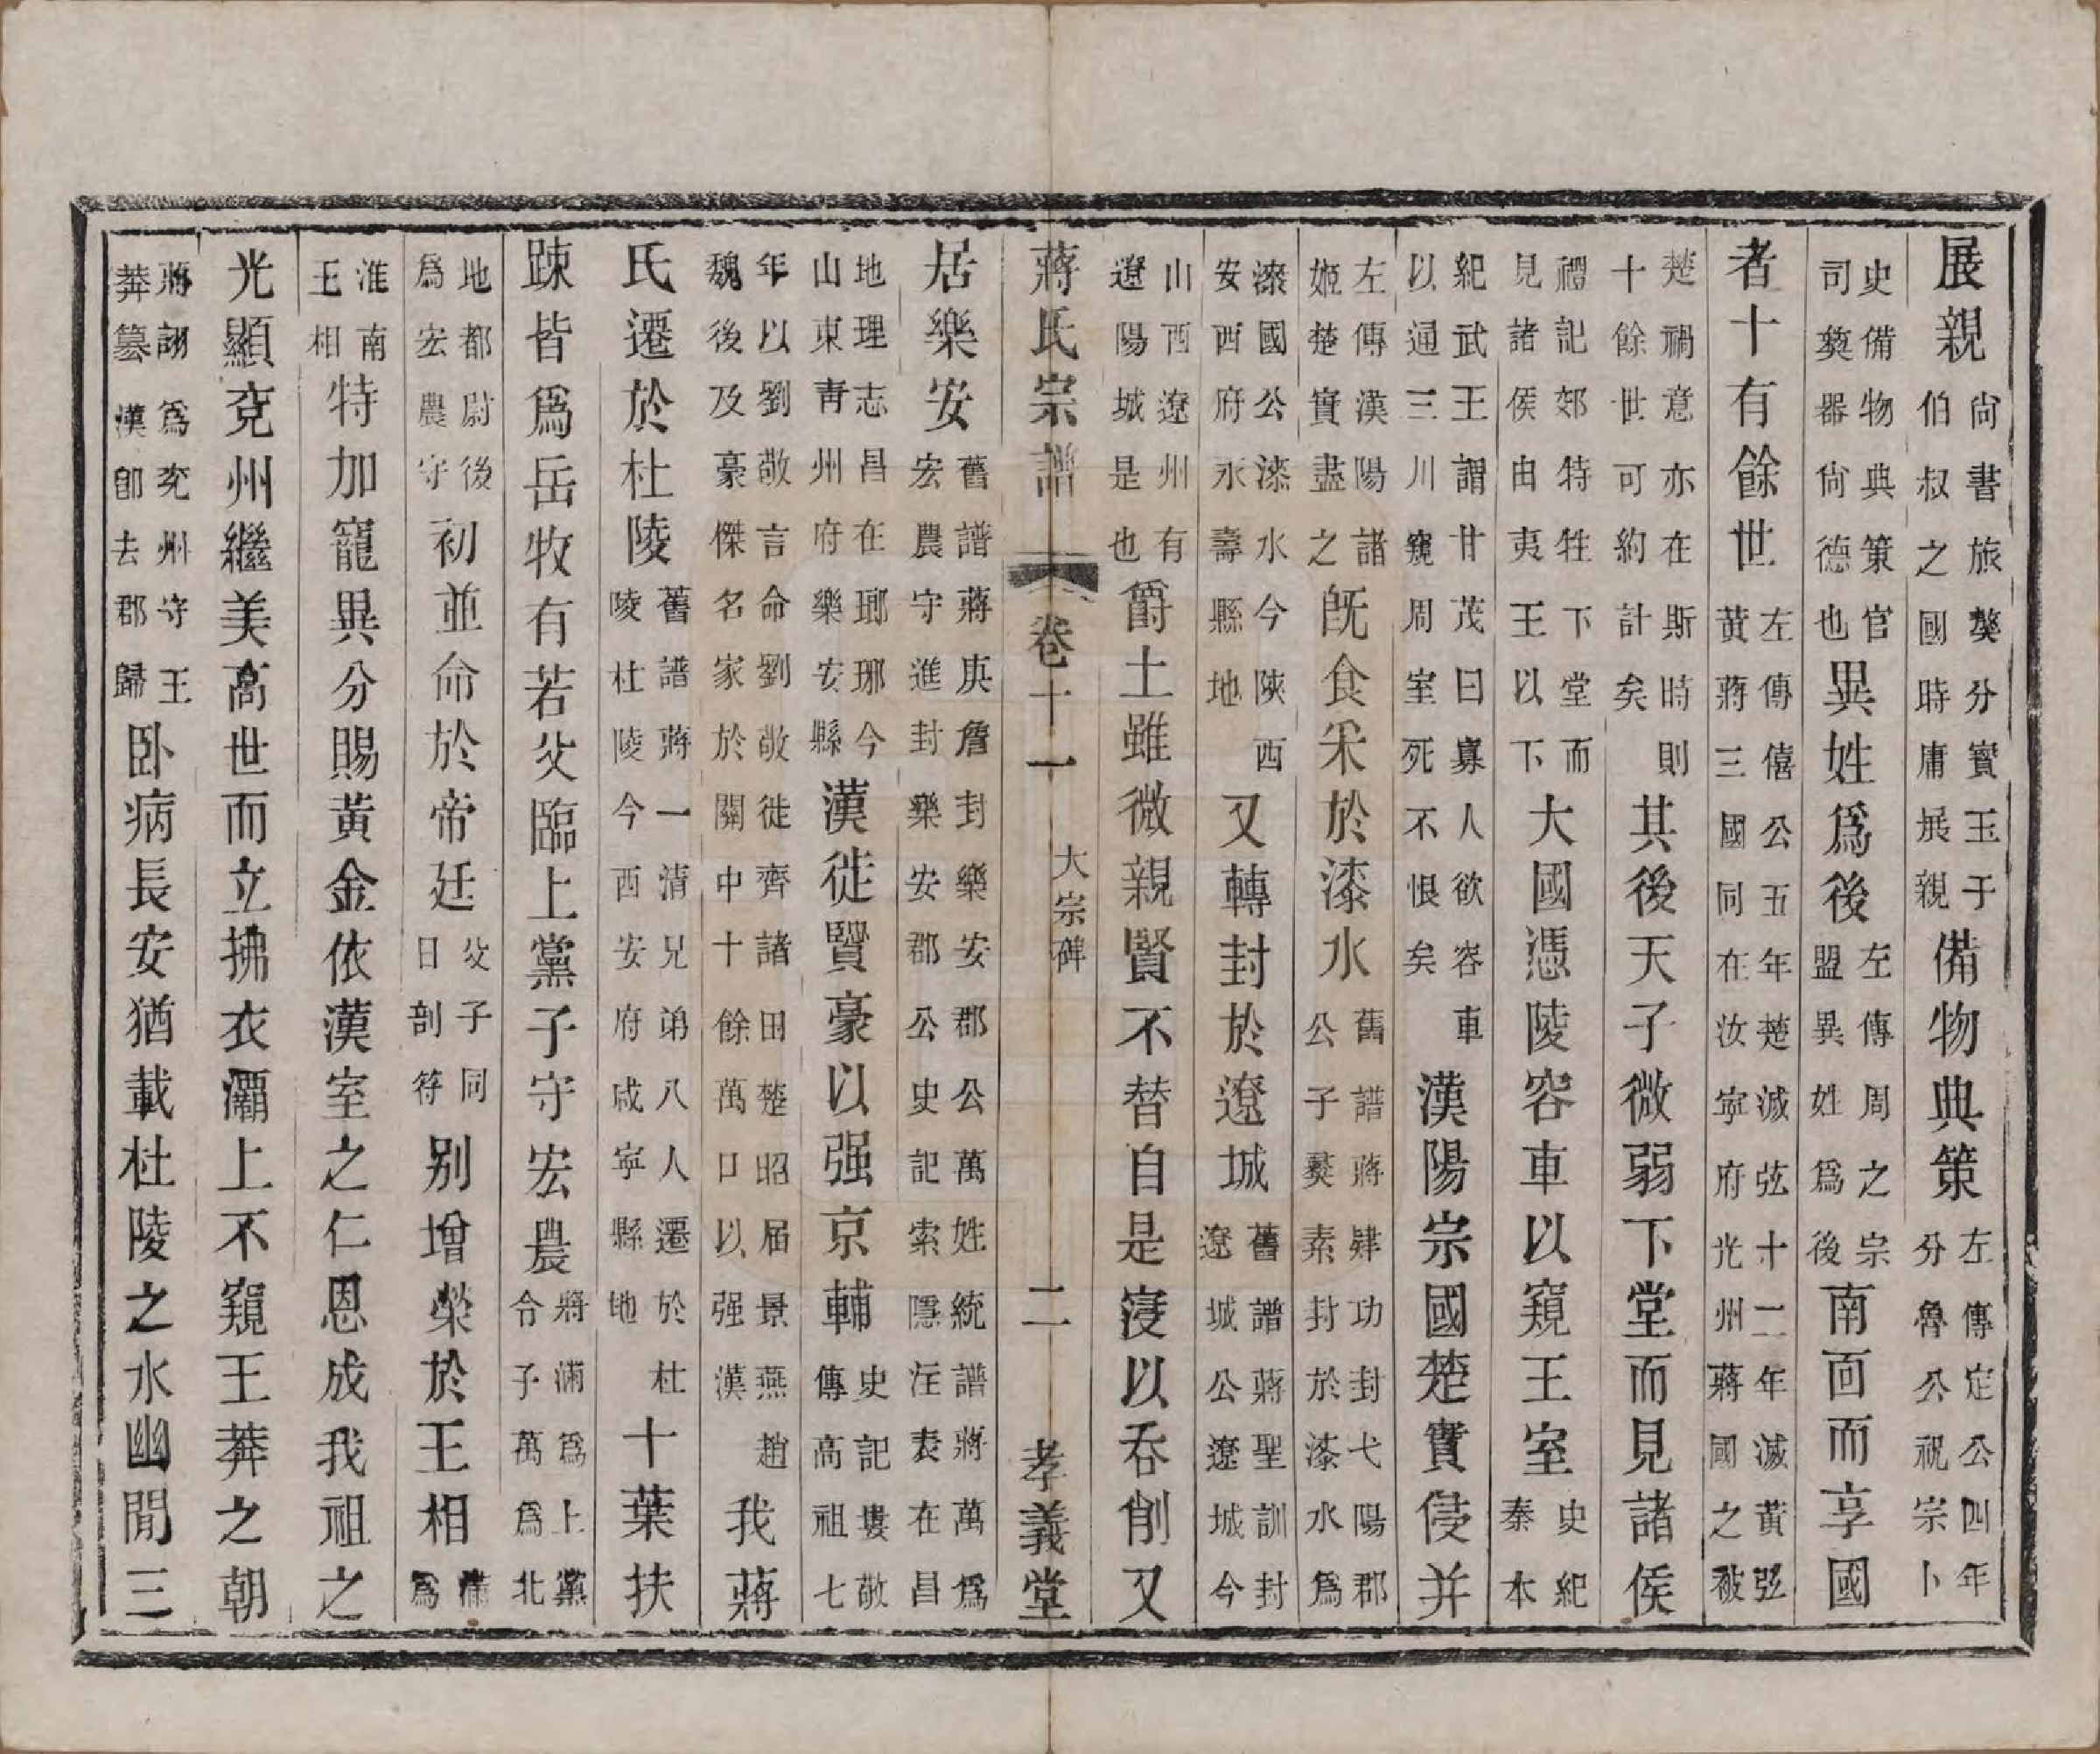 展親尚書旅獒分寶玉于伯叔之國時庸展親備物典策左傳定公四年分魯公祝宗卜
史備物典策官司奠器尚德也異姓爲後左傳周之宗盟異姓爲後南面而享國
者十有餘世左傳僖公五年楚滅弦十二年滅黃弦黃蔣三國同在汝寧府光州蔣國之被
楚禍意亦在斯時則十餘世可約計矣其後天子微弱下堂而見諸侯
禮記郊特牲下堂而見諸侯由夷王以下大國憑陵容車以窺王室史紀秦本
紀武王謂甘茂曰寡人欲容車以通三川窺周室死不恨矣漢陽宗國楚實侵并
左傳漢陽諸姬楚實盡之旣食采於漆水舊譜蔣肄功封弋陽郡公子蓺素封於漆水爲
漆國公漆水今陝西安西府永壽縣地又轉封於遼城舊譜蔣聖訓封遼城公遼城今
山西遼州有遼陽城是也爵土雖微親賢不替自是寖以吞削又
蔣氏宗譜 卷十一 大宗碑 二 孝義堂
居樂安舊譜蔣庚詹封樂安郡公萬姓統譜蔣萬爲宏農守進封樂安郡公史記索隱注表在昌
地理志昌在瑯琊今山東靑州府樂安縣漢徙賢豪以强京輔史記婁敬傳高祖七
年以劉敬言命劉敬徙齊諸田楚昭屈景燕趙魏後及豪傑名家於關中十餘萬口以强漢我蔣
氏遷於杜陵舊譜蔣一清兄弟八人遷於杜陵杜陵今西安府咸寧縣地十葉扶
踈皆爲岳牧有若父臨上黨子守宏農蔣滿爲上黨令子萬爲北
地都尉後爲宏農守初並命於帝廷父子同日剖符別增榮於王相滿爲
淮南王相特加寵異分賜黃金依漢室之仁恩成我祖之
光顯兗州繼美高世而立拂衣灞上不窺王莽之朝
蔣詡爲兗州守王莽簒漢卽去郡歸臥病長安猶載杜陵之水幽閒三